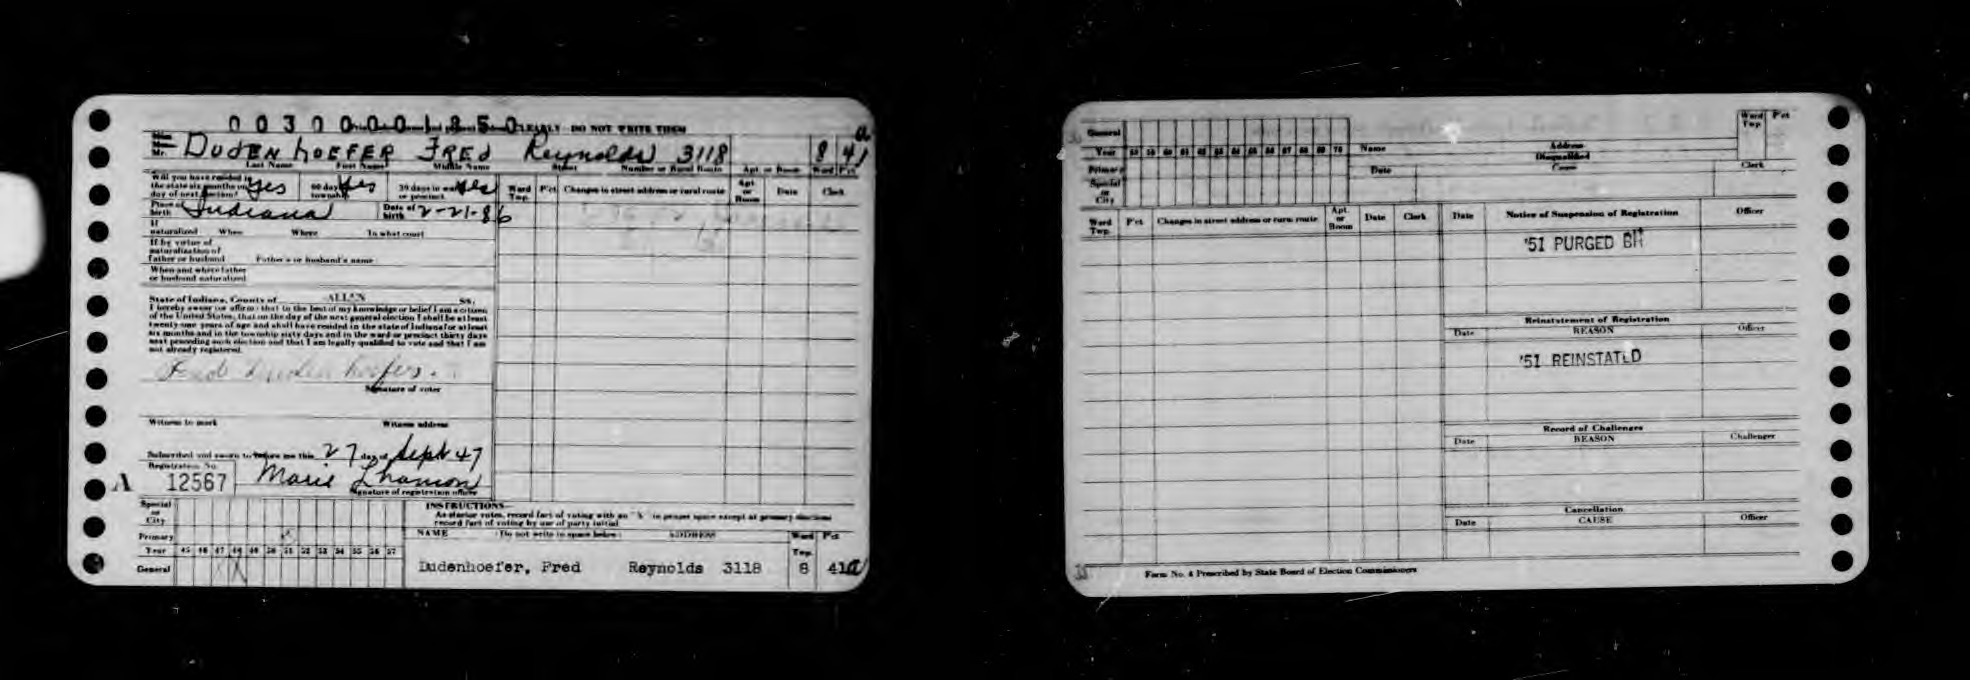 00300001850
CLEARLY - DO NOT WRITE THEM
a
Mr. DUDENhOEFER FRED Reynolds 3118 8 41
Last Name First Name Middle Name Street Number or Rural Route Apt or Room Ward Pct
Will you have resided in the state six months on day of next election? Yes 60 days in township Yes 30 days in ward or precinct Yes
Ward Twp. Pct Changes in street address or rural route Apt or Room Date Clerk
Place of birth Indiana Date of birth 2-21-86
If naturalized When Where In what court
If by virtue of
naturalization of
father or husband Father's or husband's name
When and where father
or husband naturalized
State of Indiana, County of ALLEN SS.
I hereby swear (or affirm) that to the best of my knowledge or belief I am a citizen
of the United States, that on the day of the next general election I shall be at least
twenty-one years of age and shall have resided in the state of Indiana for at least
six months and in the township sixty days and in the ward or precinct thirty days
next preceding such election and that I am legally qualified to vote and that I am
not already registered.
Fred Dudenhoefer
Signature of voter
Witness to mark Witness address
Subscribed and sworn to before me this 27 day of Sept 47
Registration No.
A 12567 Marie
Signature of registration officer
Special or City
Primary
Year 45 46 47 48 49 50 51 52 53 54 55 56 57
General
INSTRUCTIONS
As elector votes, record fact of voting with an "X" in proper space except at primary elections
record fact of voting by use of party initial
NAME (Do not write in space below) ADDRESS Ward Twp. Pct
Dudenhoefer, Fred Reynolds 3118 8 41a
General
Year 58 59 60 61 62 63 64 65 66 67 68 69 70
Primary
Special or City
Name Address Ward Twp. Pct
Disqualified
Date Cause Clerk
Ward Twp. Pct Changes in street address or rural route Apt or Room Date Clerk
Date Notice of Suspension of Registration Officer
'51 PURGED BH
Reinstatement of Registration
Date REASON Officer
'51 REINSTATED
Record of Challenges
Date REASON Challenger
Cancellation
Date CAUSE Officer
Form No. 4 Prescribed by State Board of Election Commissioners